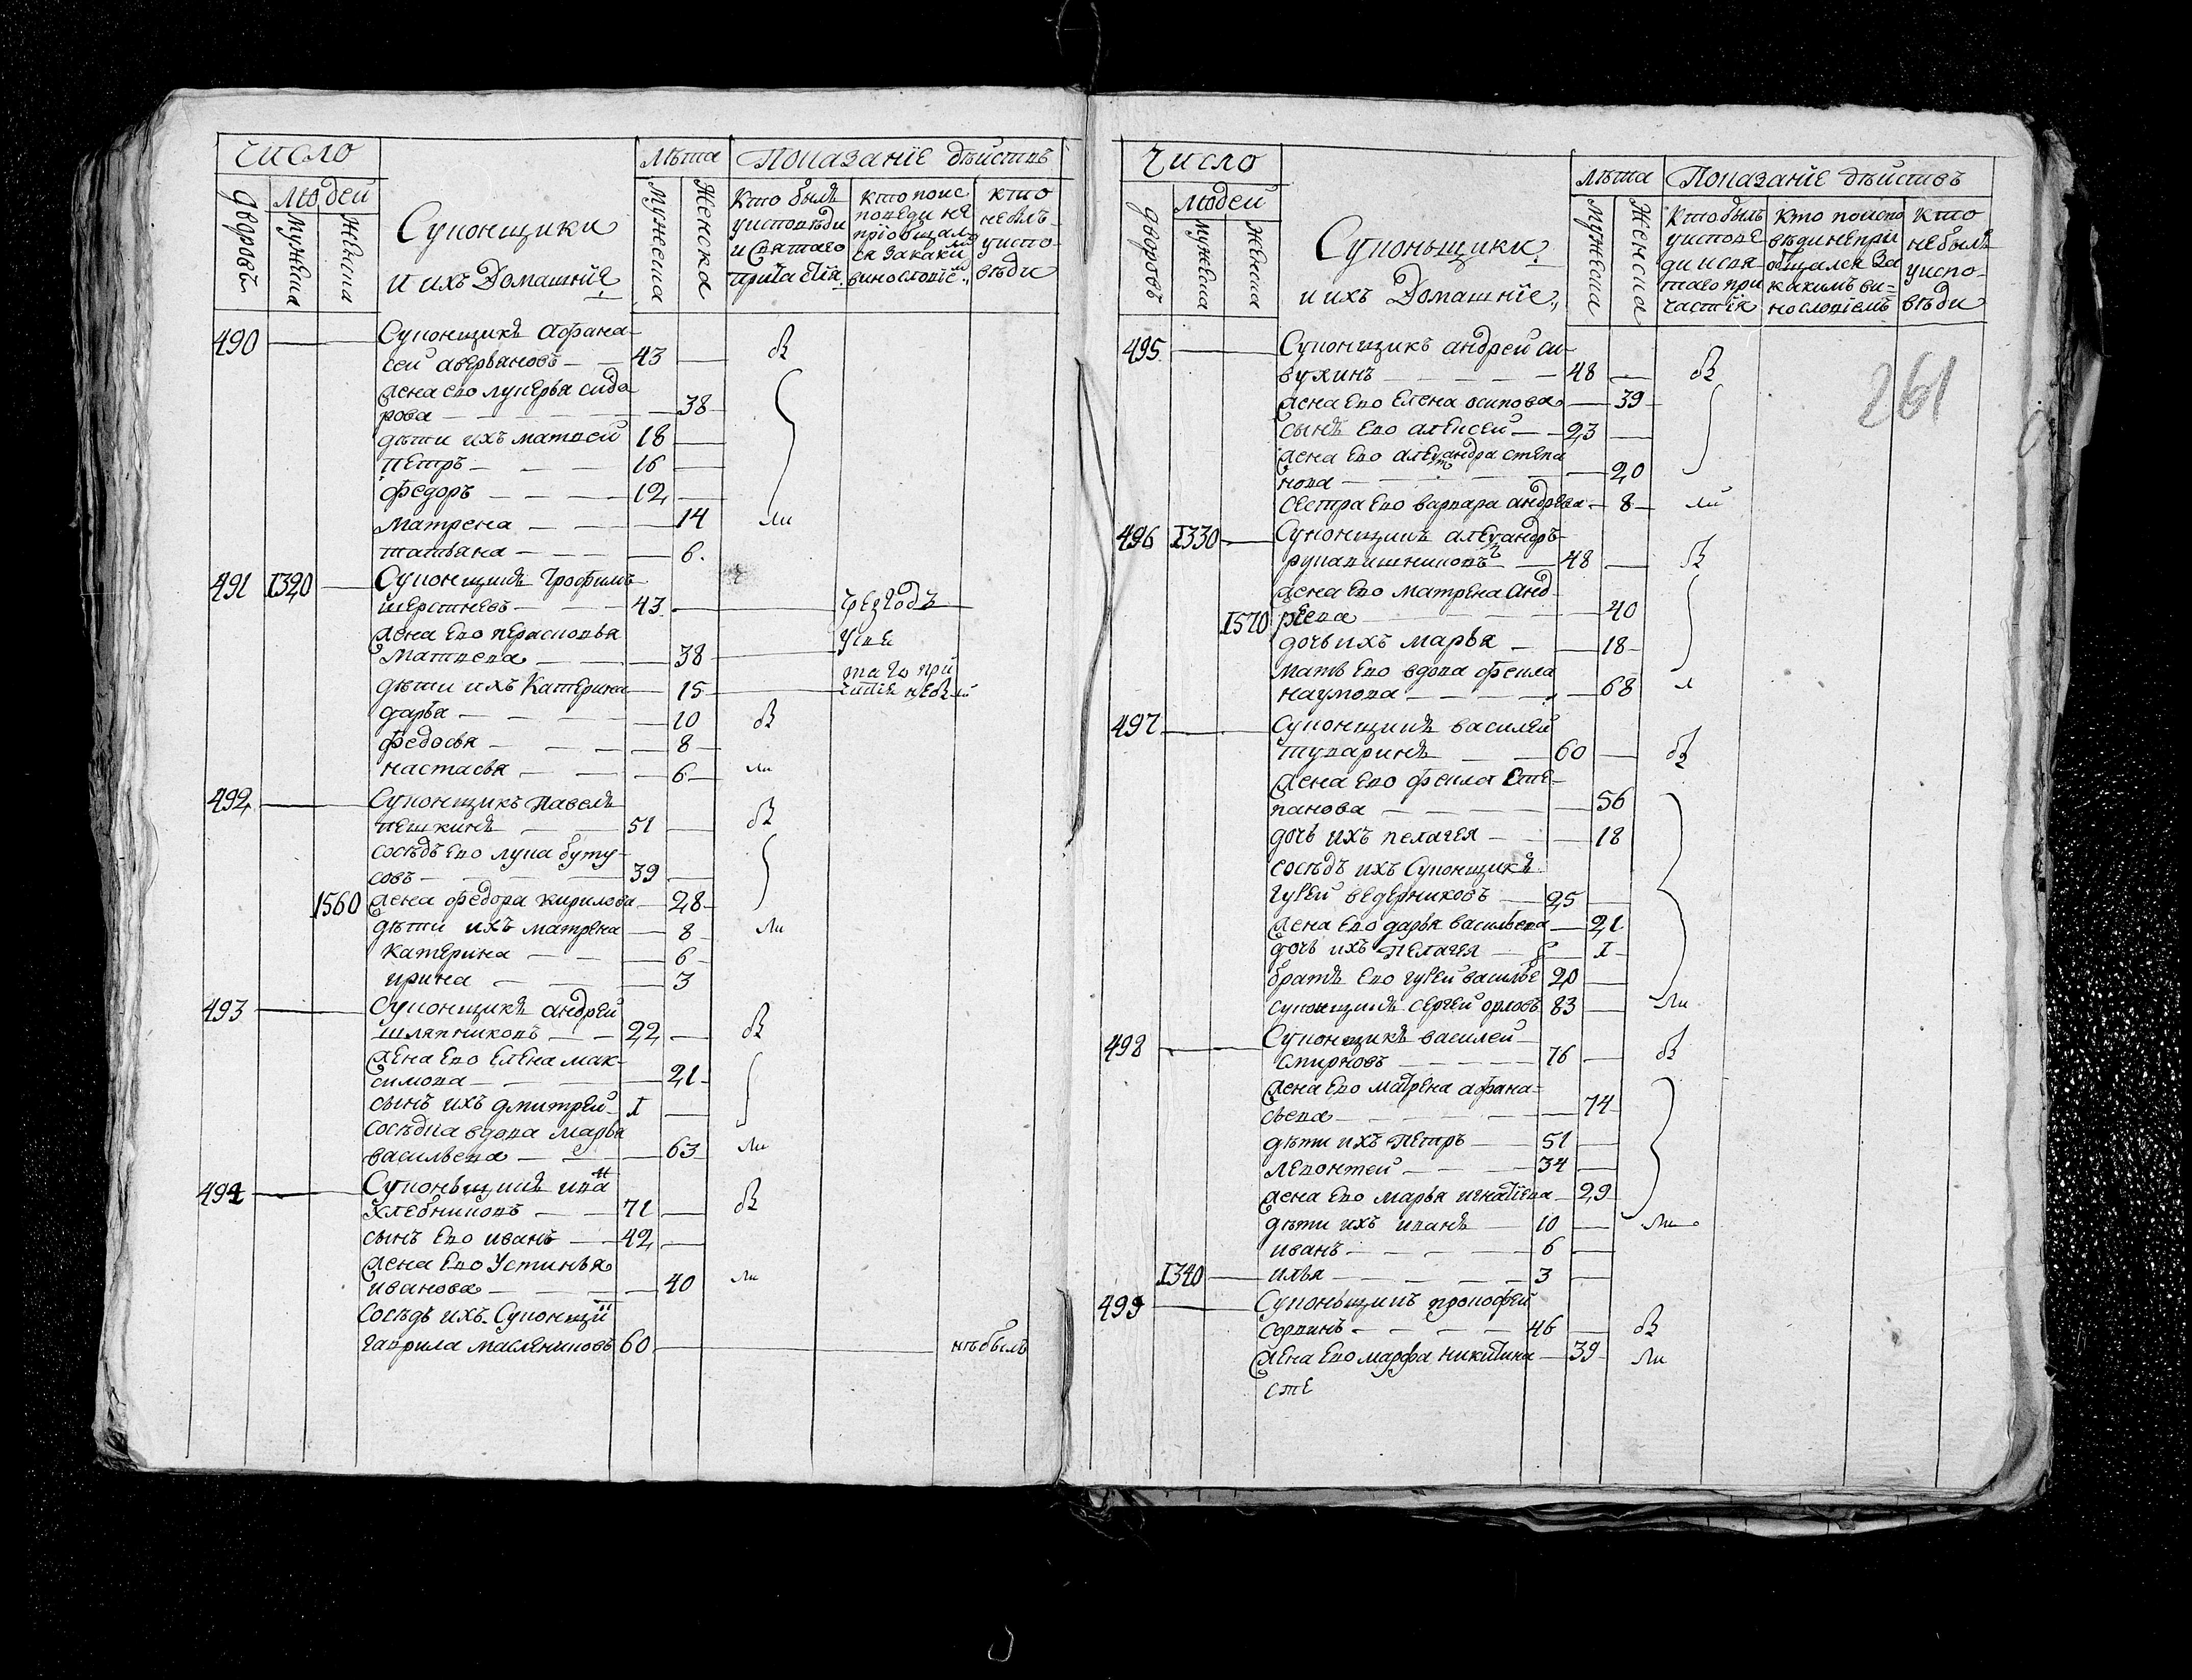 Число
Лѣта Показанїе дѣйствъ
Дворовъ
Людей
Мужеска
Женска
Суконщики
и ихъ Домашнїе
Мужеска
Женска
Кто былъ
уисповѣди
и Святаго
причастїя
кто поис
поведи не
прїобщал
ся закаки
винословїе
кто
небылъ
уиспо-
вѣди
490 Суконщикъ афана-
сеи аверьяновъ 43 бл
жена ево лукерья сидо
рова 38
дѣти ихъ матвей 18
петръ 16
федоръ 12
матрена 14 ли
татьяна 6
491 1320 Суконщикъ Трофимъ
шерстневъ 43 чрезгодъ
жена ево перасковья
матвева 38
дѣти ихъ Катерина 15
дарья 10 бл
федосья 8
настасья 6 ли
492 Суконщикъ Павелъ
пешкинъ 51 бл
сосѣдъ ево лука буту-
совъ 39
1560 жена федора кирилова 28
дѣти ихъ матрена 8 ли
катерина 6
ирина 3
493 Суконщикъ андрей
шляпниковъ 22 бл
жена ево елена мак-
симова 21
сынъ ихъ дмитрей 1
сосѣдка вдова марья
васильева 63 ли
494 Суконьщикъ ива н
хлебниковъ 71 бл
сынъ ево иванъ 42
жена ево Устинья
иванова 40 ли
Сосѣдъ ихъ Суконщи
гаврила маслениковъ 60 нѣбылъ
Число
Лѣта Показанїе дѣйствъ
Дворовъ
Людей
Мужеска
Женска
Суконьщики
и ихъ Домашнїе
Мужеска
Женска
Кто былъ
уиспове
ди исвя
таго при
частїя
Кто поиспо
вѣди непри
общался За
какимъ ви-
нословїемъ
Кто
небылъ
уиспо-
вѣди
261
495 Суконщикъ андрей си-
вухинъ 48 бл
жена ево елена осипова 39
сынъ ево алексей 23
жена ево александра степа
нова 20
сестра ево варвара андрева 8 ли
496 1330 Суконщикъ александръ
рукавишниковъ 48 бл
жена ево матрена анд-
1570 реева 40
дочь ихъ марья 18
мать ево вдова фекла
наумова 68 л
497 Суконщикъ василей
тупаринъ 60 бл
жена ево фекла Сте-
панова 56
дочь ихъ пелагея 18
сосѣдъ ихъ Суконщикъ
гурей ведерниковъ 25
жена ево дарья васильева 21
дочь ихъ пелагея 1
братъ ево гурей василье 20
суконщикъ сергей орловъ 83 ли
498 Суконщикъ василей
Смирновъ 76 бл
жена ево матрена афана-
сьева 74
дѣти ихъ петръ 51
левонтей 34
жена ево марья игнатїева 29
дѣти ихъ иванъ 10 ли
иванъ 6
1340 илья 3
499 Суконьщикъ прокофей
46 бл
жена ево марфа никитина 39 ли
сте